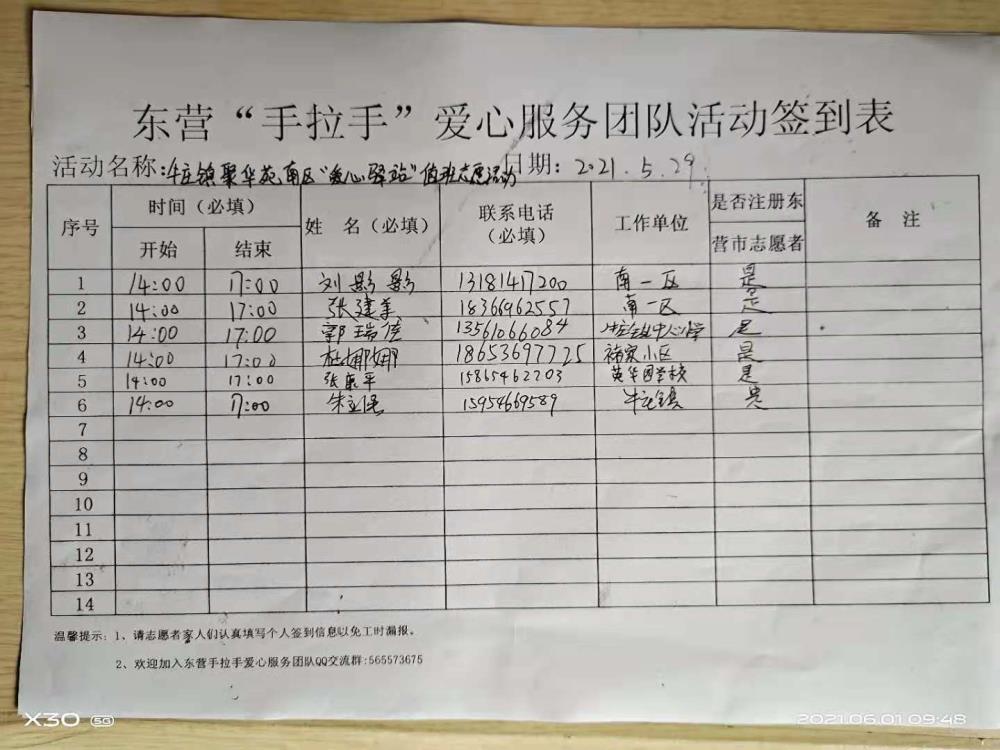 东营“手拉手”爱心服务团队活动签到表
活动名称:牛庄镇聚华苑南区“爱心驿站”值班志愿活动 日期：2021.5.29.
序号 时间（必填） 姓 名（必填） 联系电话（必填） 工作单位 是否注册东营市志愿者 备 注
开始 结束
1 14:00 17:00 刘影影 13181417200 南一区 是
2 14:00 17:00 张建美 18366962557 南一区 是
3 14:00 17:00 郭瑞 13561066084 牛庄镇中心小学 是
4 14:00 17:00 杜娜娜 18653697725 小区 是
5 14:00 17:00 张康平 15865462203 英华园学校 是
6 14:00 17:00 朱 15954669589 牛庄镇 是
7
8
9
10
11
12
13
14
温馨提示：1、请志愿者家人们认真填写个人签到信息以免工时漏报。
2、欢迎加入东营手拉手爱心服务团队QQ交流群:565573675
X30 5G
2021.06.01 09:48